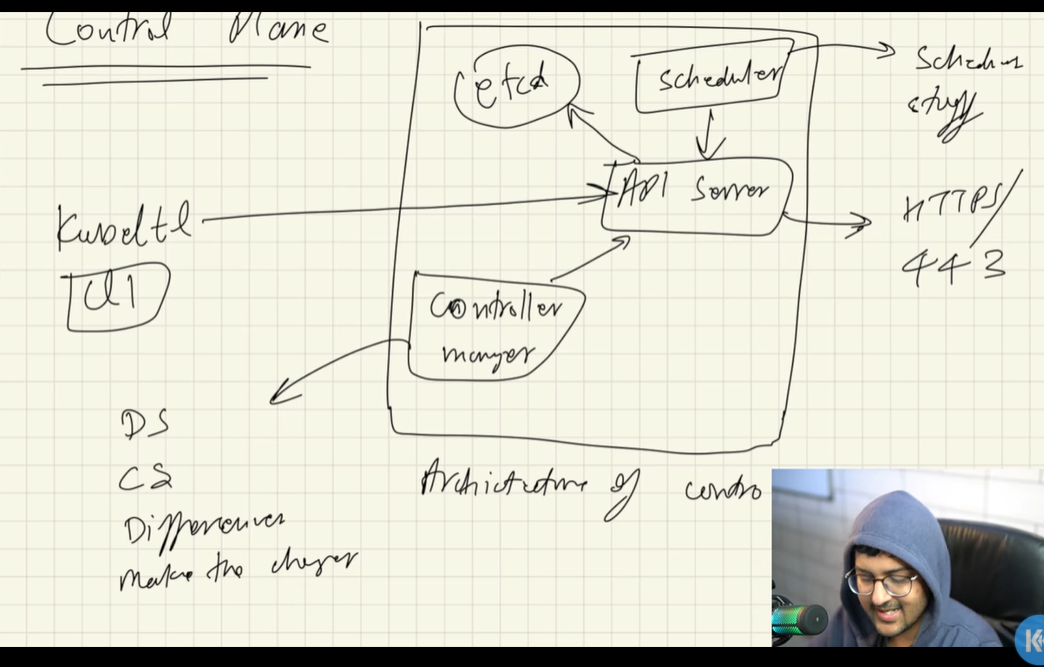 Control Plane
etcd
Scheduler
Schedules
stuff
API Server
Kubectl
HTTPS/
443
UI
Controller
manager
DS
CS
Differences
Make the changes
Architecture of contro
K